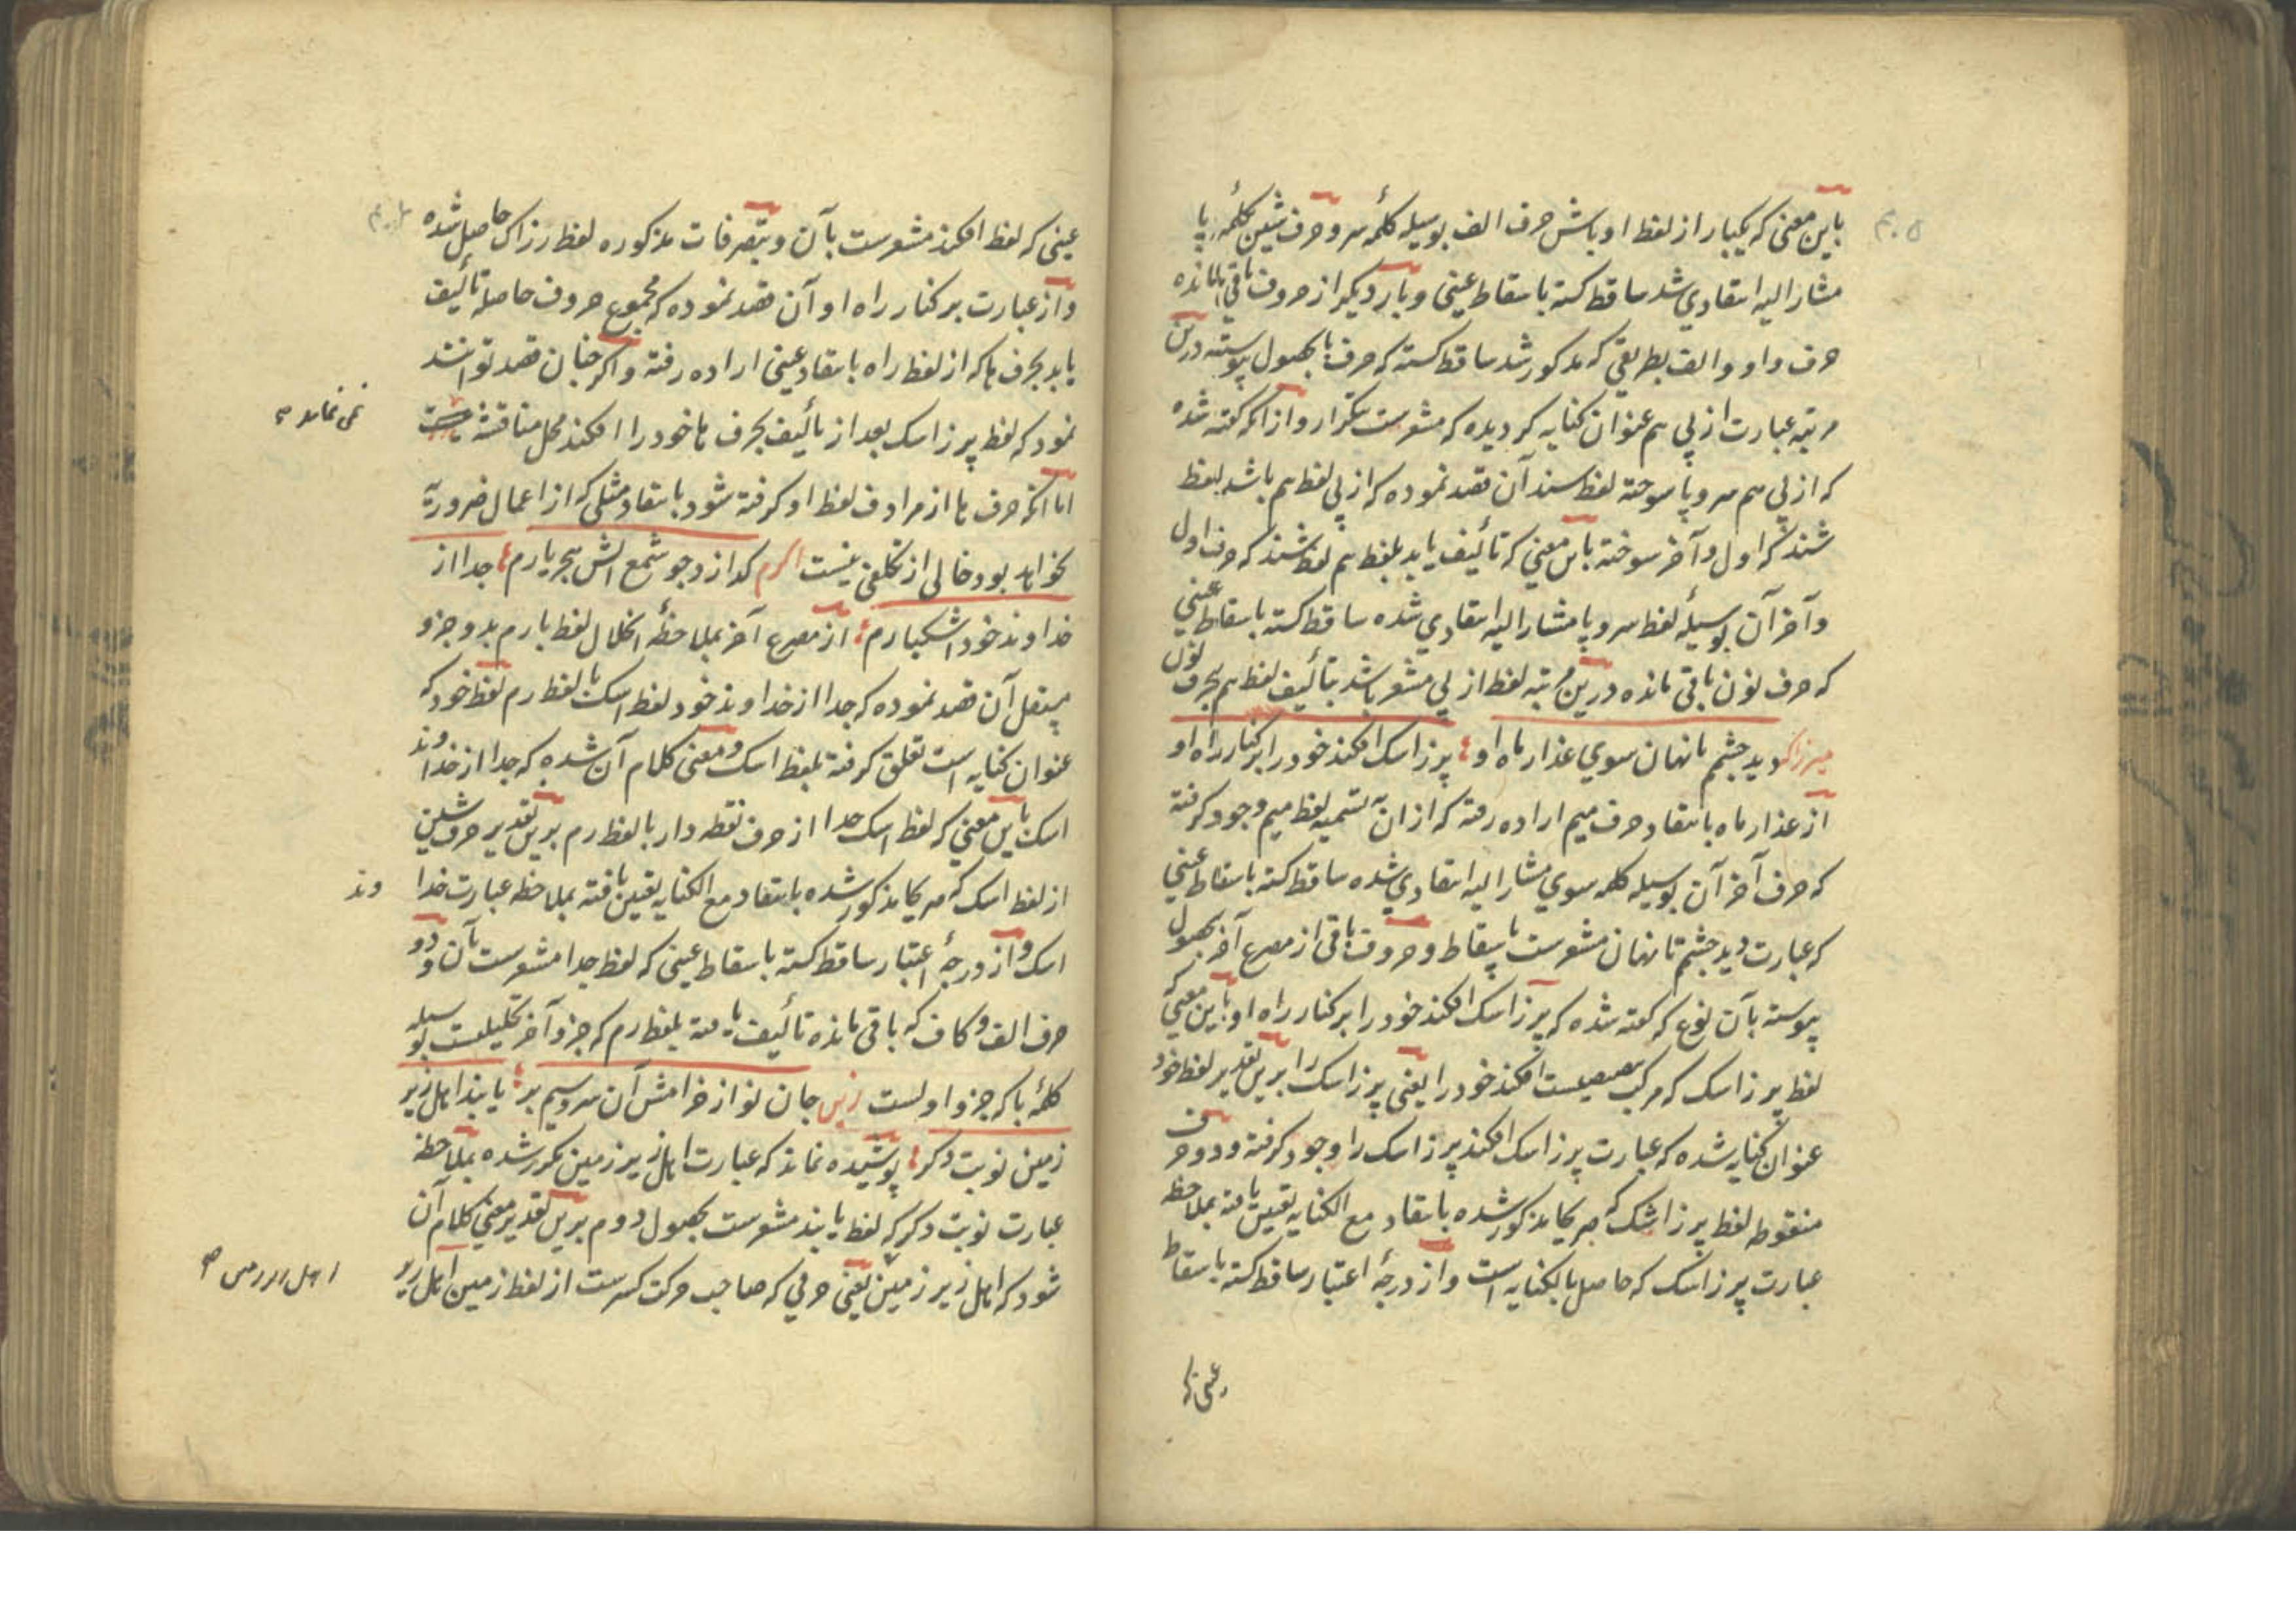 باین معنی که یکبار از لفظ اوباش حرف الف بوسیله کلمۀ سر و حرف شین بکلمۀ پا
مشار الیه انتقادی شد ساقط کشته باسقاط عینی و بار دیکر از حروف باقی مانده
حرف واو و الف بطریقی که مذکور شد ساقط کشته که حرف با بحصول پیوسته درین
مرتبه عبارت از پی هم عنوان کنایه کردیده که مشعرست بتکرار و از آنکه کفته شده
که از پی هم سر و پا سوخته لفظ سند آن قصد نموده که از پی لفظ هم باشد لفظ
شند که اول و آخر سوخته باین معنی که تألیف یابد بلفظ هم لفظ شند که حرف اول
و آخر آن بوسیلۀ لفظ سر و پا مشار الیه انتقادی شده ساقط کشته باسقاط عینی
که حرف نون باقی مانده درین مرتبه لفظ از پی مشعر باشد بتألیف لفظ هم بحرف نون
میرزاک دید چشم تا نهان سوی عذار ماه او پرز اشک افکند خود را بر کنار راه او
از عذار ماه بانتقاد حرف میم اراده رفته که از ان تسمیه لفظ میم وجود کرفته
که حرف آخر آن بوسیله کلمه سوی مشار الیه انتقادی شده ساقط کشته باسقاط عینی
که عبارت دید چشم تا نهان مشعرست باسقاط و حروف باقی از مصرع آخر بحصول
پیوسته بآن نوع که کفته شده که پرز اشک افکند خود را بر کنار راه او باین معنی که
لفظ پرز اشک که مرکب افکند خود را یعنی پرز اشک را برین تقدیر لفظ خود
عنوان کنایه شده که عبارت پرز اشک افکند پرز اشک را وجود کرفته و دو حرف
منقوطه لفظ پرز اشک که صریحا مذکور شده بانتقاد مع الکنایه تعیین یافته بملاحظه
عبارت پرز اشک که حاصل بالکنایه است و از درجۀ اعتبار ساقط کشته باسقاط
عینی که
عینی که لفظ افکند مشعرست بآن و بتصرفات مذکوره لفظ رزاک حاصل شده
و از عبارت بر کنار راه او آن قصد نموده که مجموع حروف حاصله تألیف
یابد بحرف ها که از لفظ راه بانتقاد عینی اراده رفته و اکر چنان قصد توانند
نمود که لفظ پرز اشک بعد از تألیف بحرف ها خود را افکند محل مناقشه
نمی نماند
اما اکر حرف ها از مرادف لفظ او کرفته شود بانتقاد مثلی که از اعمال ضروریه
نخواهد بود خالی از تکلفی نیست اکرم کدازد چو شمع آتش هجر یارم جدا از
خداوند خود اشکبارم از مصرع آخر بملاحظۀ انحلال لفظ بارم بدو جزو
مستقل آن قصد نموده که جدا از خداوند خود لفظ اشک با لفظ رم لفظ خود که
عنوان کنایه است تعلق کرفته بلفظ اشک و معنی کلام آن شده که جدا از خداوند
اشک باین معنی که لفظ اشک جدا از حرف نقطه دار با لفظ رم برین تقدیر حرف شین
از لفظ اشک که صریحا مذکور شده بانتقاد مع الکنایه تعیین یافته بملاحظه عبارت خدا
وند
اشک و از درجۀ اعتبار ساقط کشته باسقاط عینی که لفظ جدا مشعرست بآن و دو
حرف الف و کاف که باقی مانده تألیف یافته بلفظ رم که جزو آخر تحلیلست بوسیله
کلمۀ با که جزو اولست زین جان نواز خرامش آن سرو سیم بر یابند اهل زیر
زمین نوبت دکر پوشیده نماند که عبارت اهل زیر زمین مکرر شده بملاحظه
عبارت نوبت دکر که لفظ یابند مشعرست بحصول دوم برین تقدیر معنی کلام آن
شود که اهل زیر زمین یعنی حرفی که صاحب حرکت کسرست از لفظ زمین اهل زیر
اهل زیر زمین